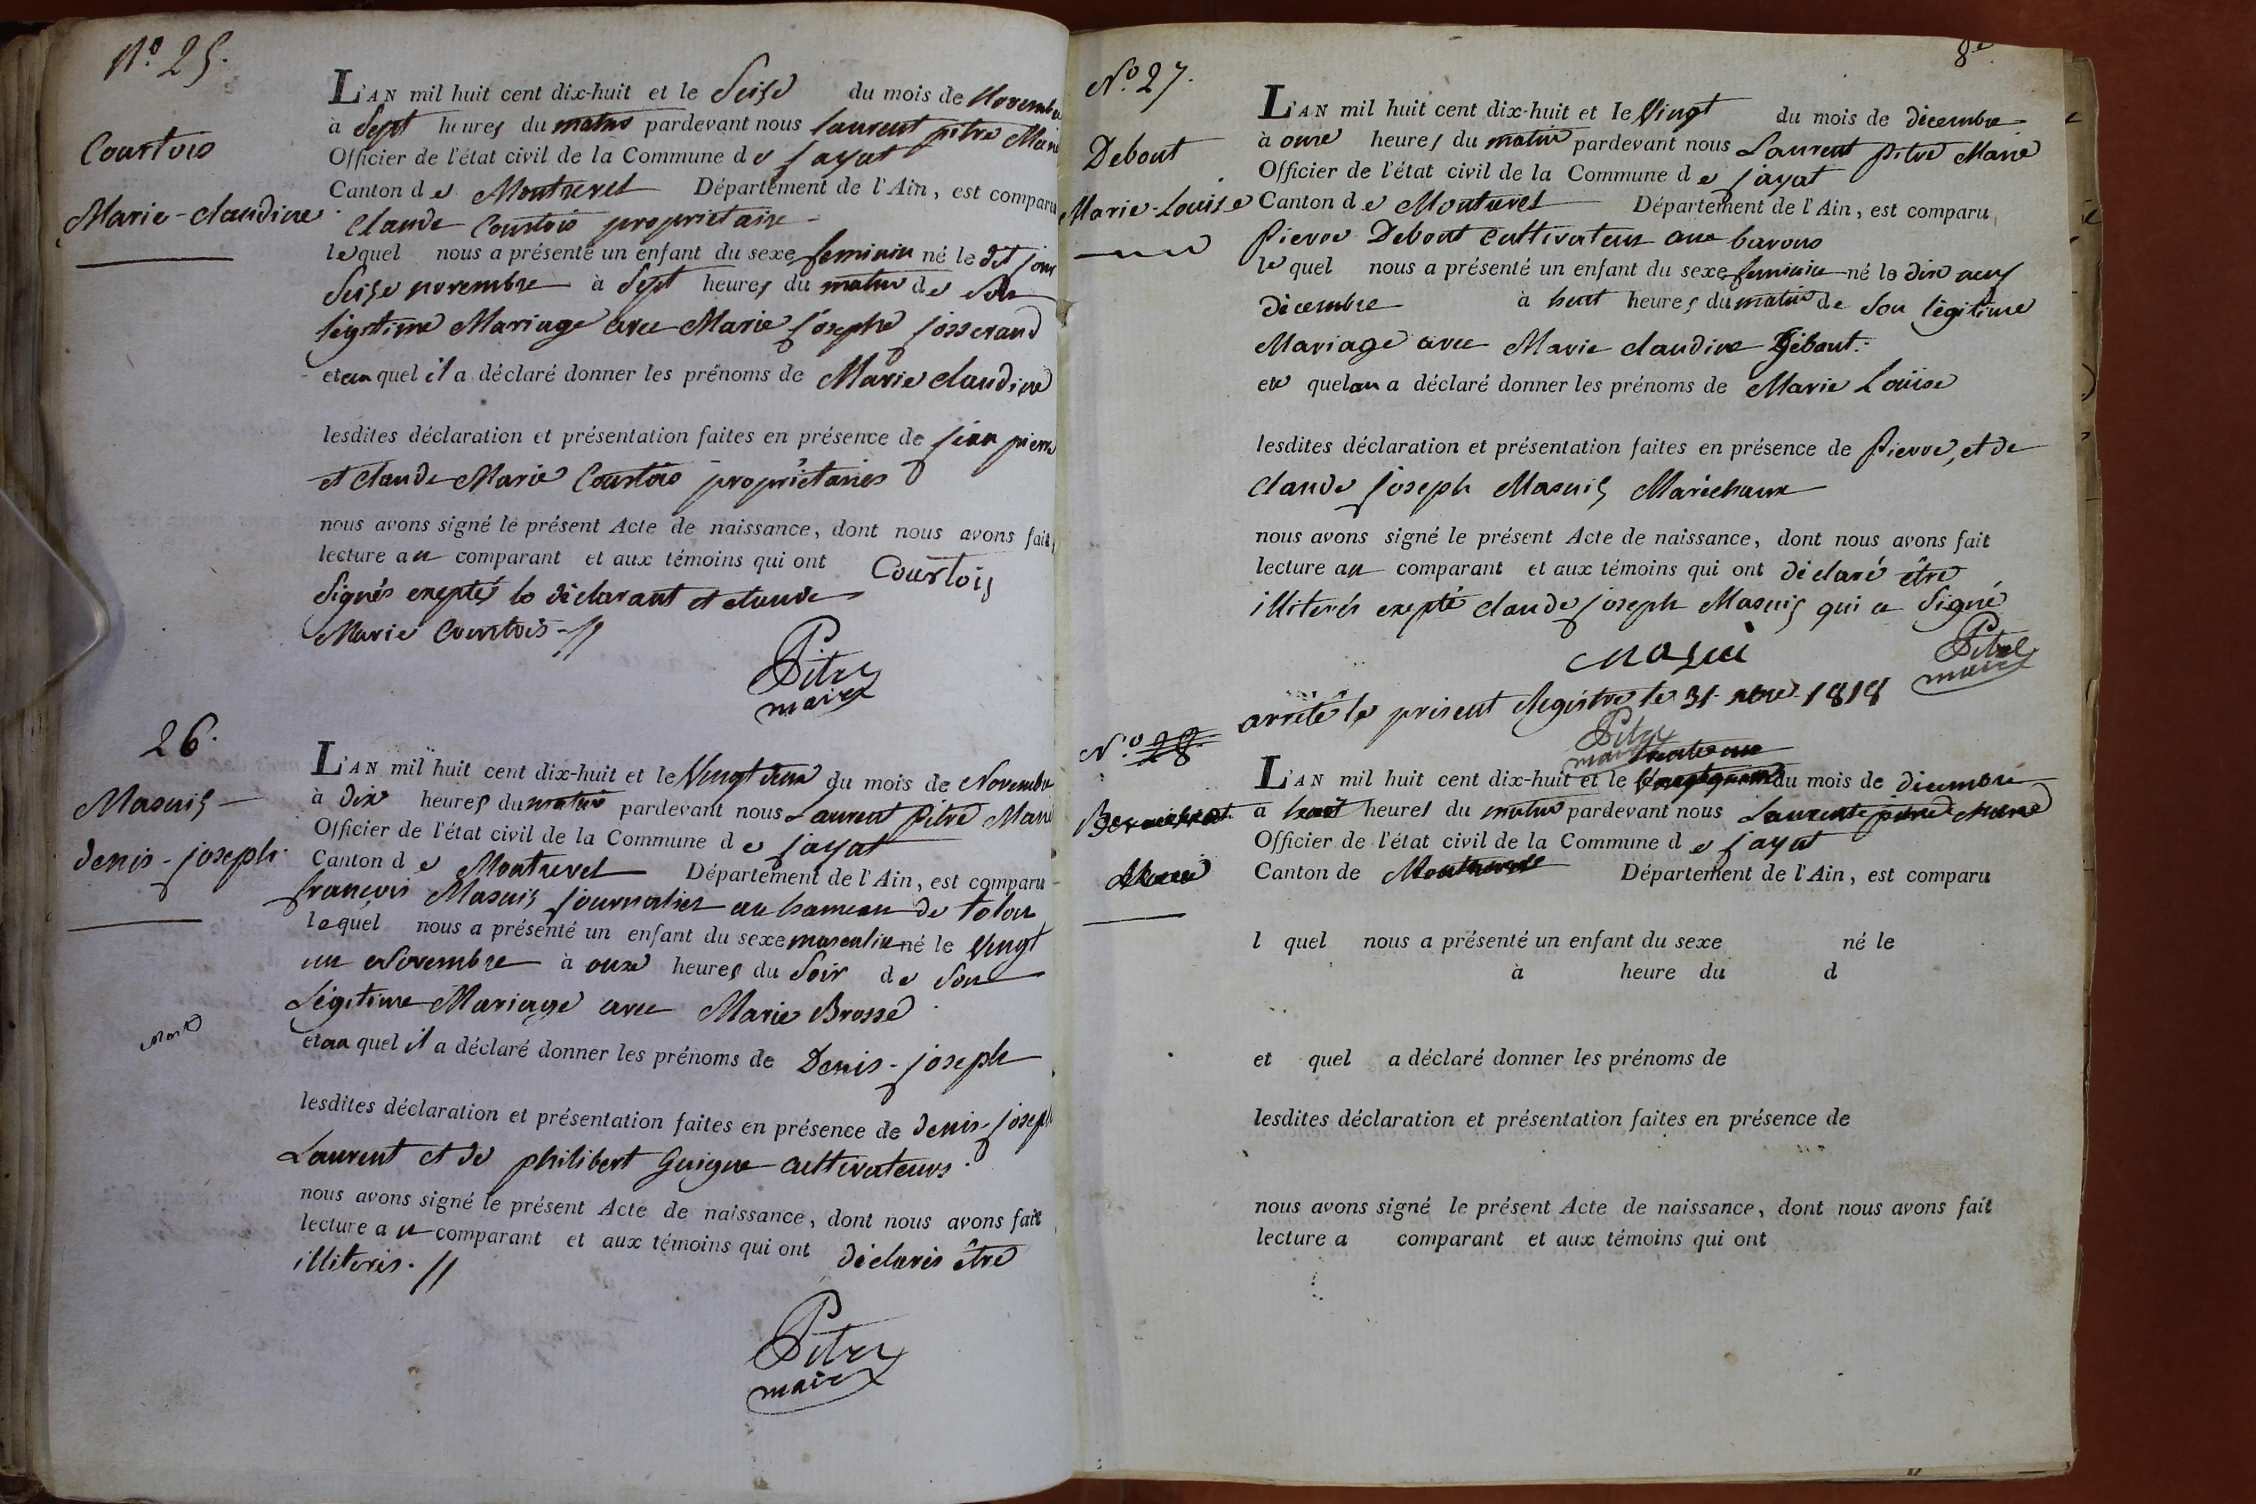 N.º 25.
Courtois
Marie-claudine
L'AN mil huit cent dix-huit et le Seise du mois de Novembre
à Sept heures du matin pardevant nous Laurent pitre Maire
Officier de l'état civil de la Commune de jayat
Canton de Montrevel Département de l'Ain, est comparu
Claude Courtois proprietaire
lequel nous a présenté un enfant du sexe feminin né le dit jour
Seise novembre à Sept heures du matin de Son
légitime Mariage avec Marie josephe josserand
et au quel il a déclaré donner les prénoms de Marie claudine
lesdites déclaration et présentation faites en présence de jean pierre
et claude Marie Courtois proprietaires
nous avons signé le présent Acte de naissance, dont nous avons fait
lecture au comparant et aux témoins qui ont
Signés exepté le déclarant et claude
Marie Courtois-//
Courtois
Pitre
maire
26.
Masuis
denis-joseph
mort
L'AN mil huit cent dix-huit et le Vingt deux du mois de Novembre
à dix heures du matin pardevant nous Laurent Pitre Maire
Officier de l'état civil de la Commune de jayat
Canton de Montrevel Département de l'Ain, est comparu
françois Masuis journalier au hameau de
lequel nous a présenté un enfant du sexe masculin né le Vingt
un Novembre à onze heures du Soir de Son
Légitime Mariage avec Marie Brossé
et au quel il a déclaré donner les prénoms de Denis-joseph
lesdites déclaration et présentation faites en présence de denis-joseph
Laurent et de philibert Guigue cultivateurs.
nous avons signé le présent Acte de naissance, dont nous avons fait
lecture au comparant et aux témoins qui ont déclarés être
illiterés.//
Pitre
maire
8e
N.º 27.
Debout
Marie-Louise
L'AN mil huit cent dix-huit et le Vingt du mois de décembre
à onze heures du matin pardevant nous Laurent pitre Maire
Officier de l'état civil de la Commune de jayat
Canton de Montrevel Département de l'Ain, est comparu
Pierre Debout cultivateur aux barons
lequel nous a présenté un enfant du sexe feminin né le dix neuf
décembre à huit heures du matin de Son légitime
Mariage avec Marie claudine
et quel a déclaré donner les prénoms de Marie Louise
lesdites déclaration et présentation faites en présence de Pierre, et de
claude joseph Masuis Maréchaux
nous avons signé le présent Acte de naissance, dont nous avons fait
lecture au comparant et aux témoins qui ont déclaré être
illiterés exepté claude joseph Masuis qui a Signé
Masui
Pitre
maire
arrêté le présent Registre le 31 Xbre 1818
Pitre
maire
N.º 28.
L'AN mil huit cent dix-huit et le trente un du mois de décembre
à heures du matin pardevant nous Laurent pitre Maire
Officier de l'état civil de la Commune de jayat
Canton de Montrevel Département de l'Ain, est comparu
l quel nous a présenté un enfant du sexe né le
à heure du d
et quel a déclaré donner les prénoms de
lesdites déclaration et présentation faites en présence de
nous avons signé le présent Acte de naissance, dont nous avons fait
lecture a comparant et aux témoins qui ont